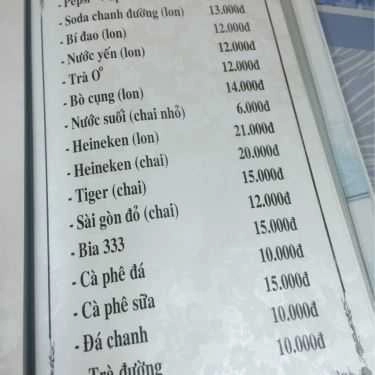 - Soda chanh đường (lon) 13.000đ
- Bí đao (lon) 12.000đ
- Nước yến (lon) 12.000đ
- Trà O° 12.000đ
- Bò cụng (lon) 14.000đ
- Nước suối (chai nhỏ) 6.000đ
- Heineken (lon) 21.000đ
- Heineken (chai) 20.000đ
- Tiger (chai) 15.000đ
- Sài gòn đỏ (chai) 12.000đ
- Bia 333 15.000đ
- Cà phê đá 10.000đ
- Cà phê sữa 15.000đ
- Đá chanh 10.000đ
- Trà đường 10.000đ